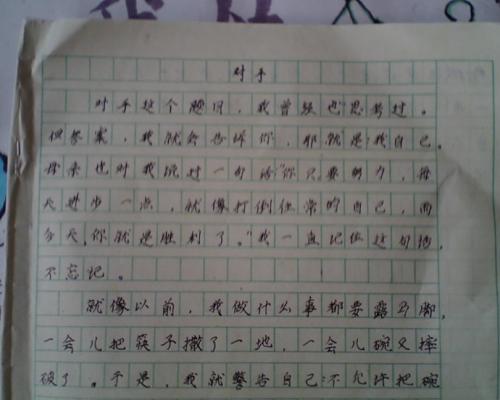 对手
对手这个题目，我曾经也思考过。
但答案，我就会告诉你，那就是:我自己。
母亲也对我说过一句话“你只要努力，每
天进步一点，就像打倒往常的自己，而
今天，你就是胜利了。”我一直记住这句话，
不忘记。
就像以前，我做什么事都要露马脚，
一会儿把筷子撒了一地，一会儿碗又摔
破了。于是，我就警告自己:不允许把碗